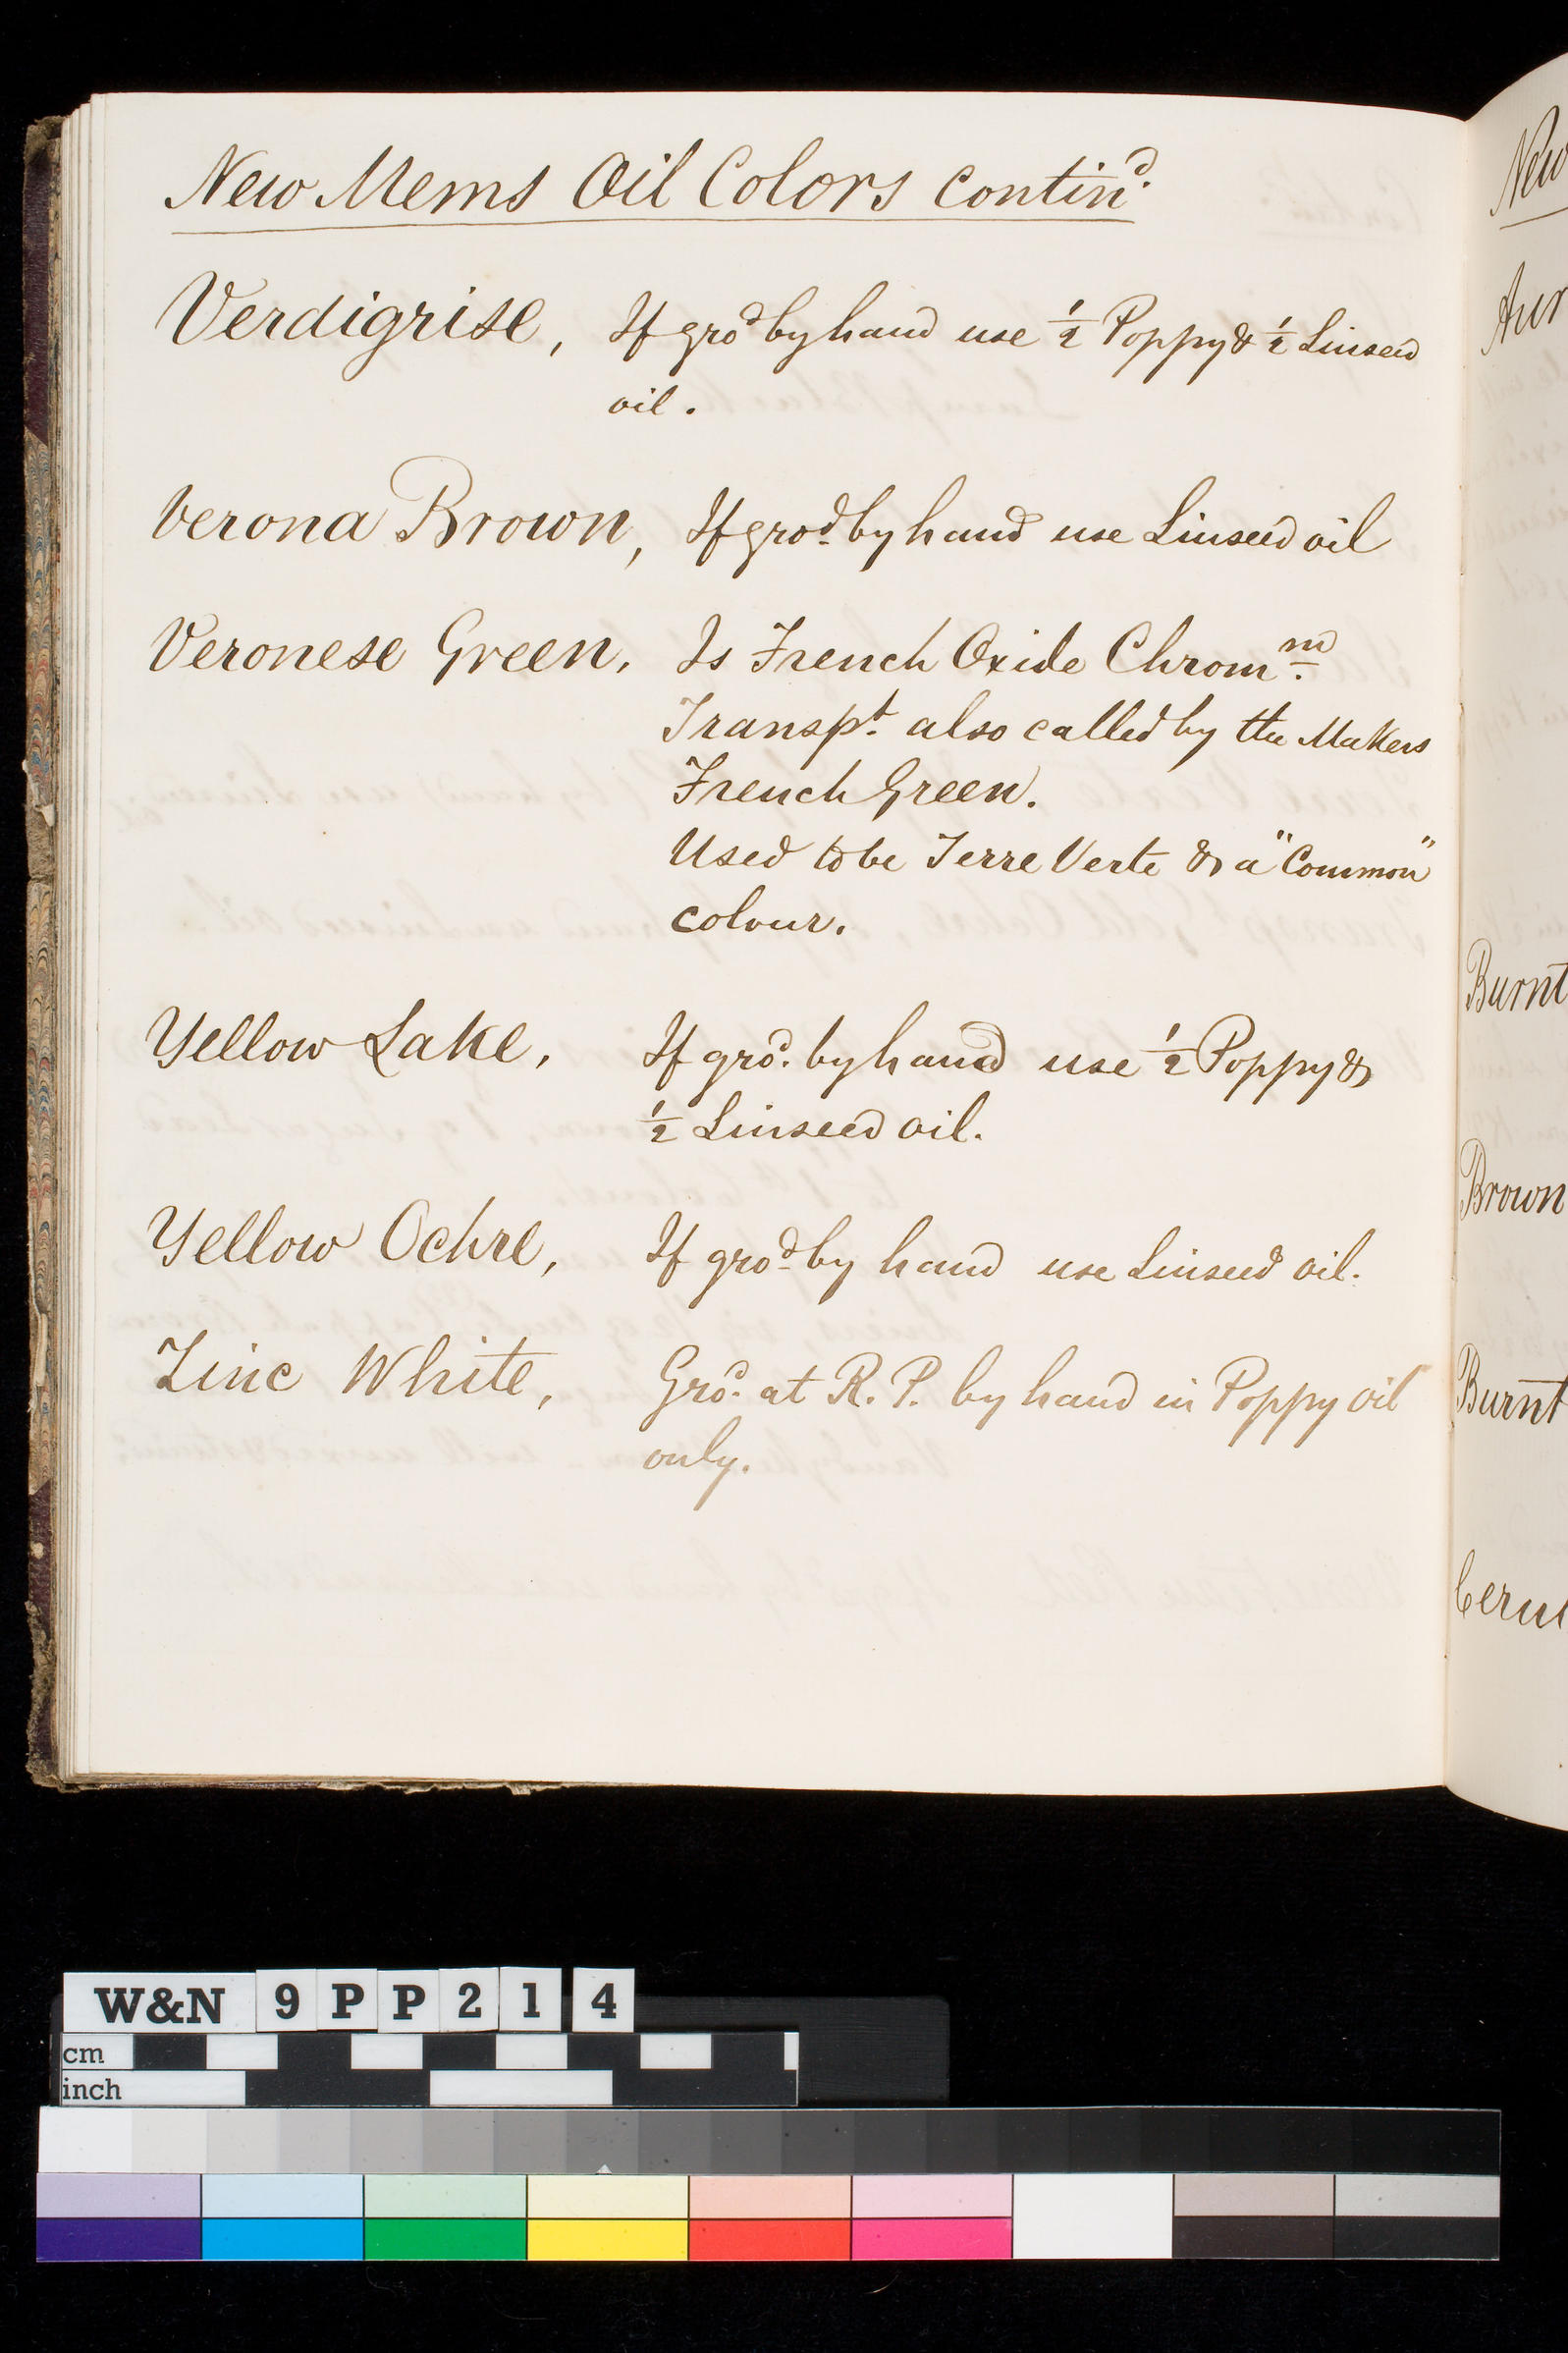 New Mems Oil Colors Contin^d.
Verdigrise, If gro^d by hand use ½ Poppy & ½ Linseed
oil.
Verona Brown, If gro^d. by hand use Linseed oil
Veronese Green. Is French Oxide Chrom^m.
Transp^t. also called by the Makers
French Green.
Used to be Terre Verte & a "Common"
colour.
Yellow Lake, If gro^d. by hand use ½ Poppy &
½ Linseed oil.
Yellow Ochre, If gro^d. by hand use Linseed oil.
Zinc White, Gro^d. at R. P. by hand in Poppy oil
only.
New
Burnt
Brown
Burnt
W&N 9PP214
cm
inch